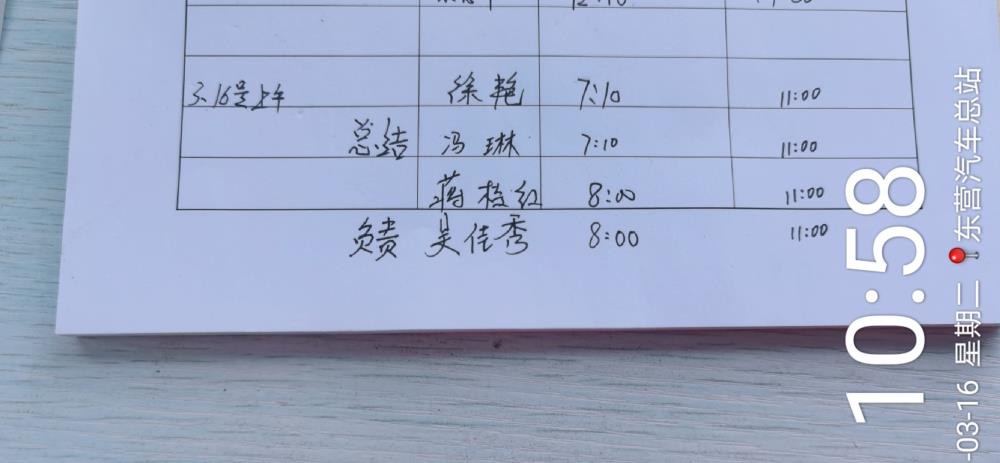 3.16号上午 徐艳 7:10 11:00
总结 冯琳 7:10 11:00
蒋桂红 8:00 11:00
负责 吴佳秀 8:00 11:00
10:58
-03-16 星期二 东营汽车总站